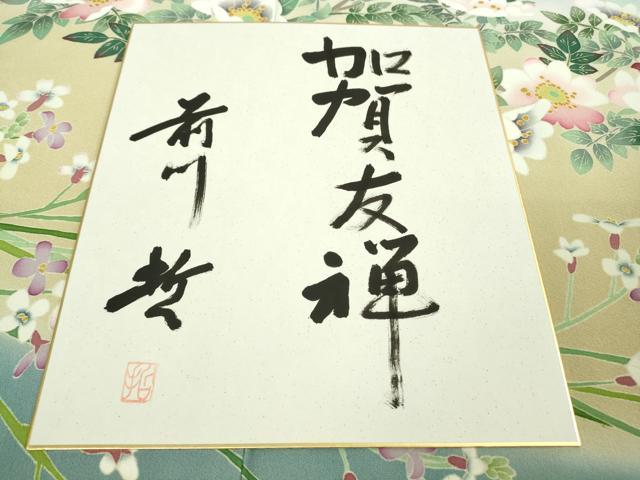 加賀友禅
前川
哲